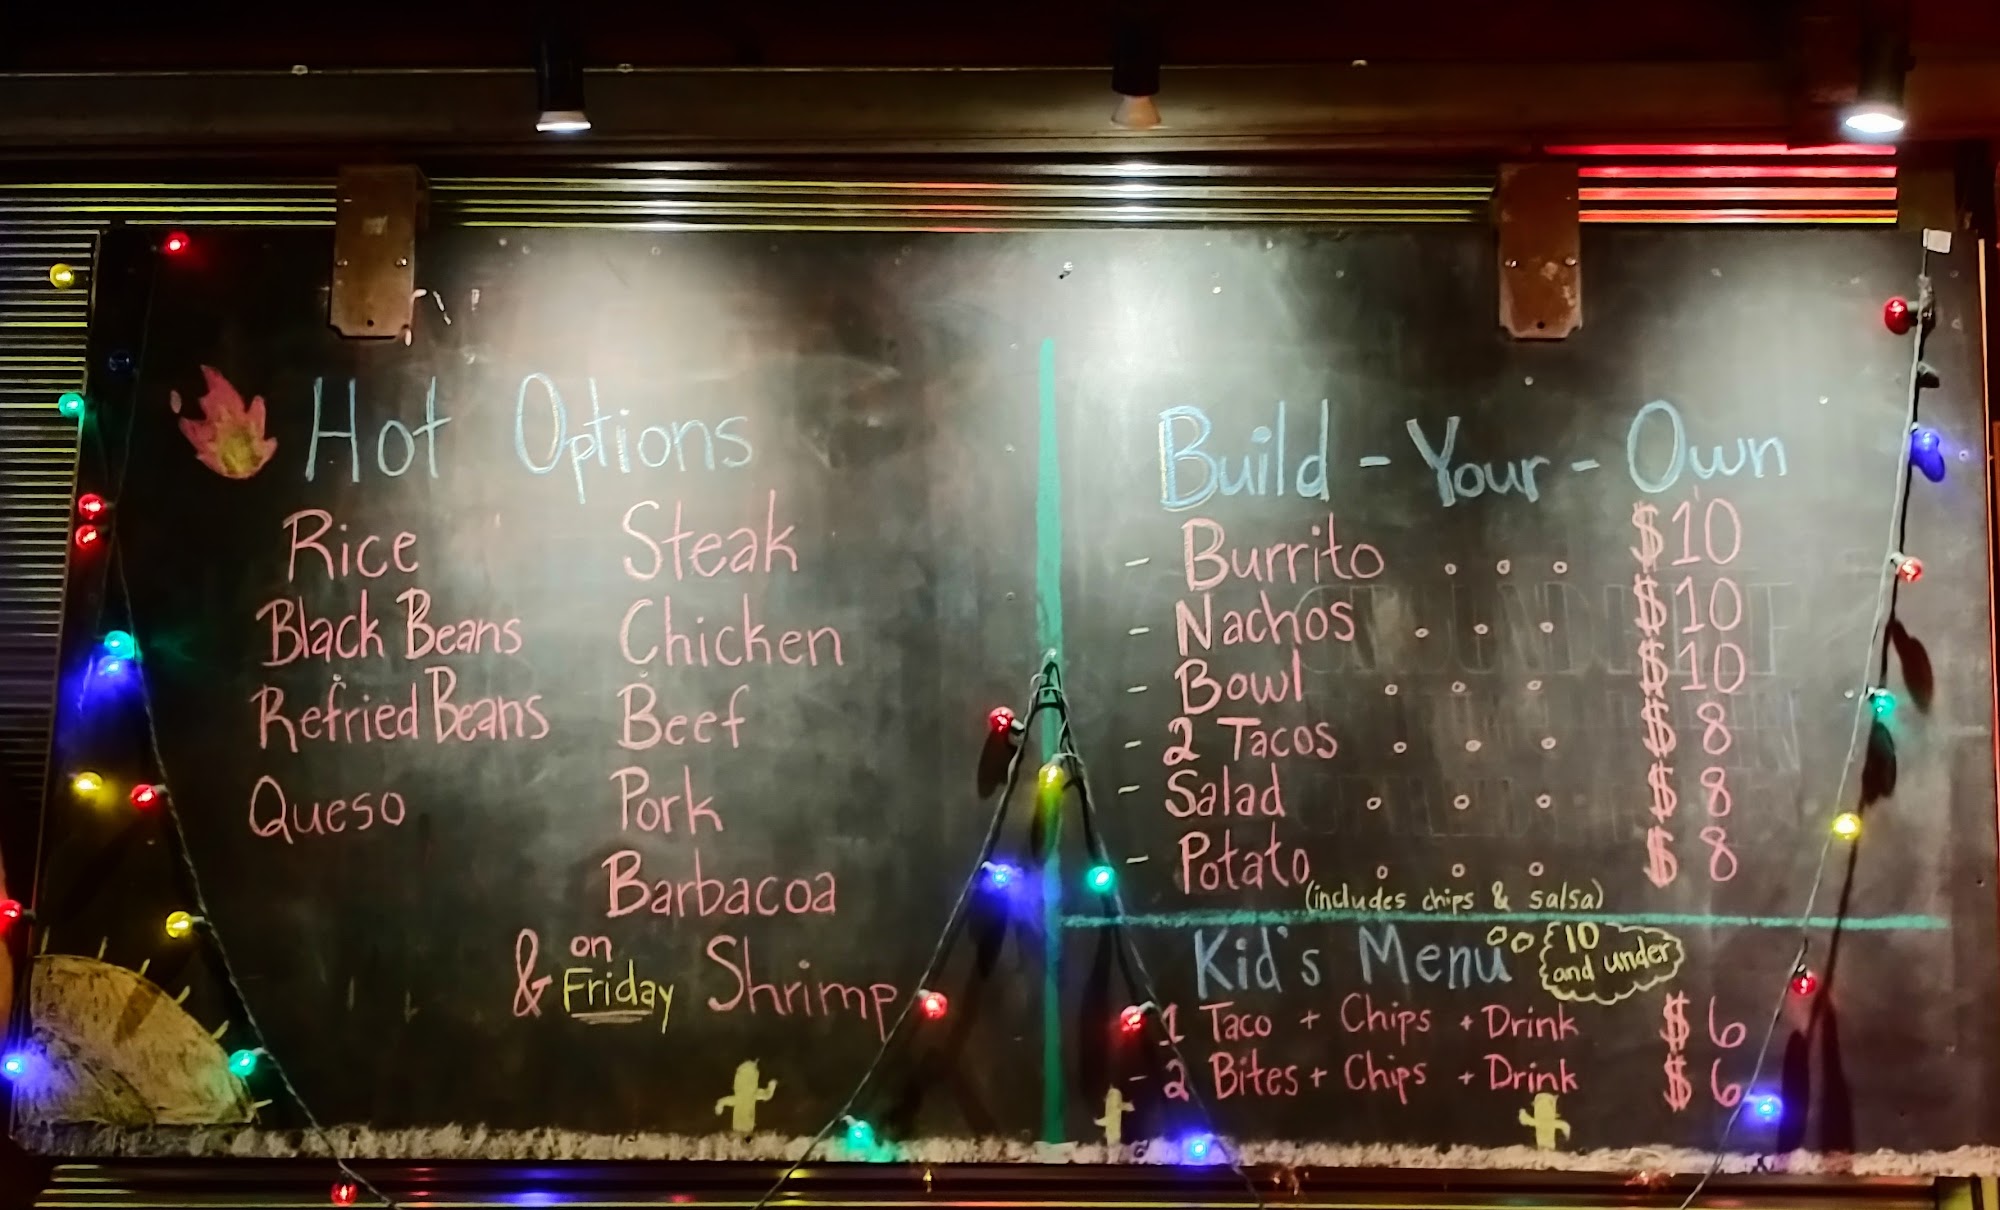 Hot Options
Rice
Black Beans
Refried Beans
Queso
Steak
Chicken
Beef
Pork
Barbacoa
& on Friday Shrimp
Build-Your-Own
- Burrito . . . $10
- Nachos . . . $10
- Bowl . . . $10
- 2 Tacos . . . $8
- Salad . . . $8
- Potato . . . $8
(includes chips & salsa)
Kid's Menu
10
and under
1 Taco + Chips + Drink $6
- 2 Bites + Chips + Drink $6